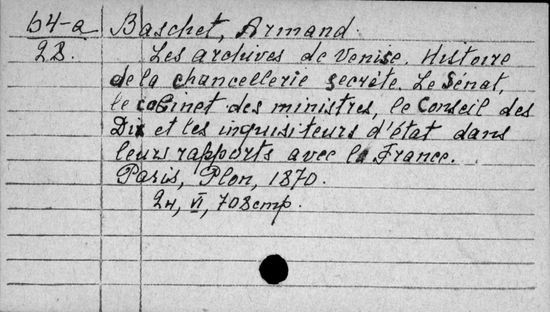 64-a Baschet, Armand
2B. Les archives de Venise. Histoire
de la chancellerie secrète. Le Sénat,
le cabinet des ministres, le Conseil des
Dix et les inquisiteurs d'état dans
leurs rapports avec la France.
Paris, Plon, 1870.
2н, VI, 708 стр.